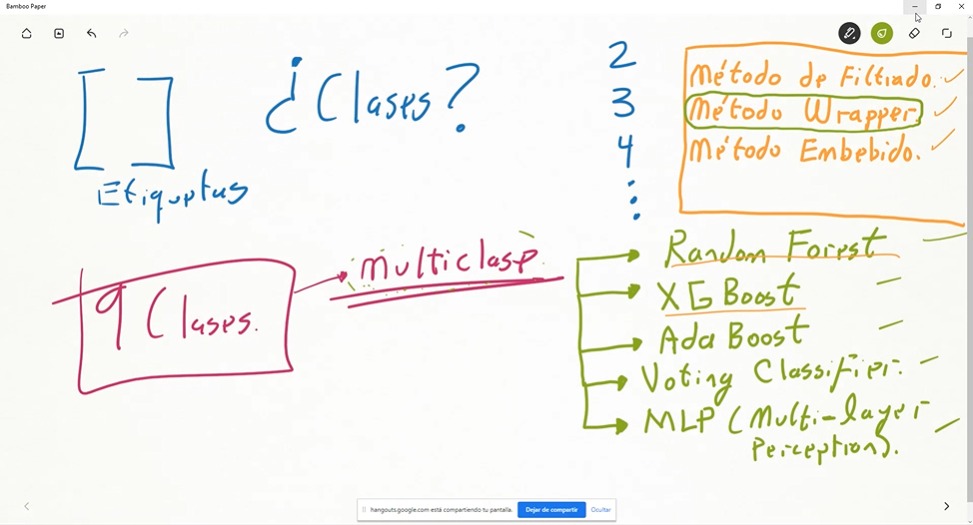 Bamboo Paper
¿Clases?
2
3
4
Método de Filtrado.
Método Wrapper.
Método Embebido.
Etiquetas
multiclase
9 Clases.
Random Forest
XG Boost
Ada Boost
Voting Classifier.
MLP (Multi-layer
Perception).
hangouts.google.com está compartiendo tu pantalla.
Dejar de compartir
Ocultar